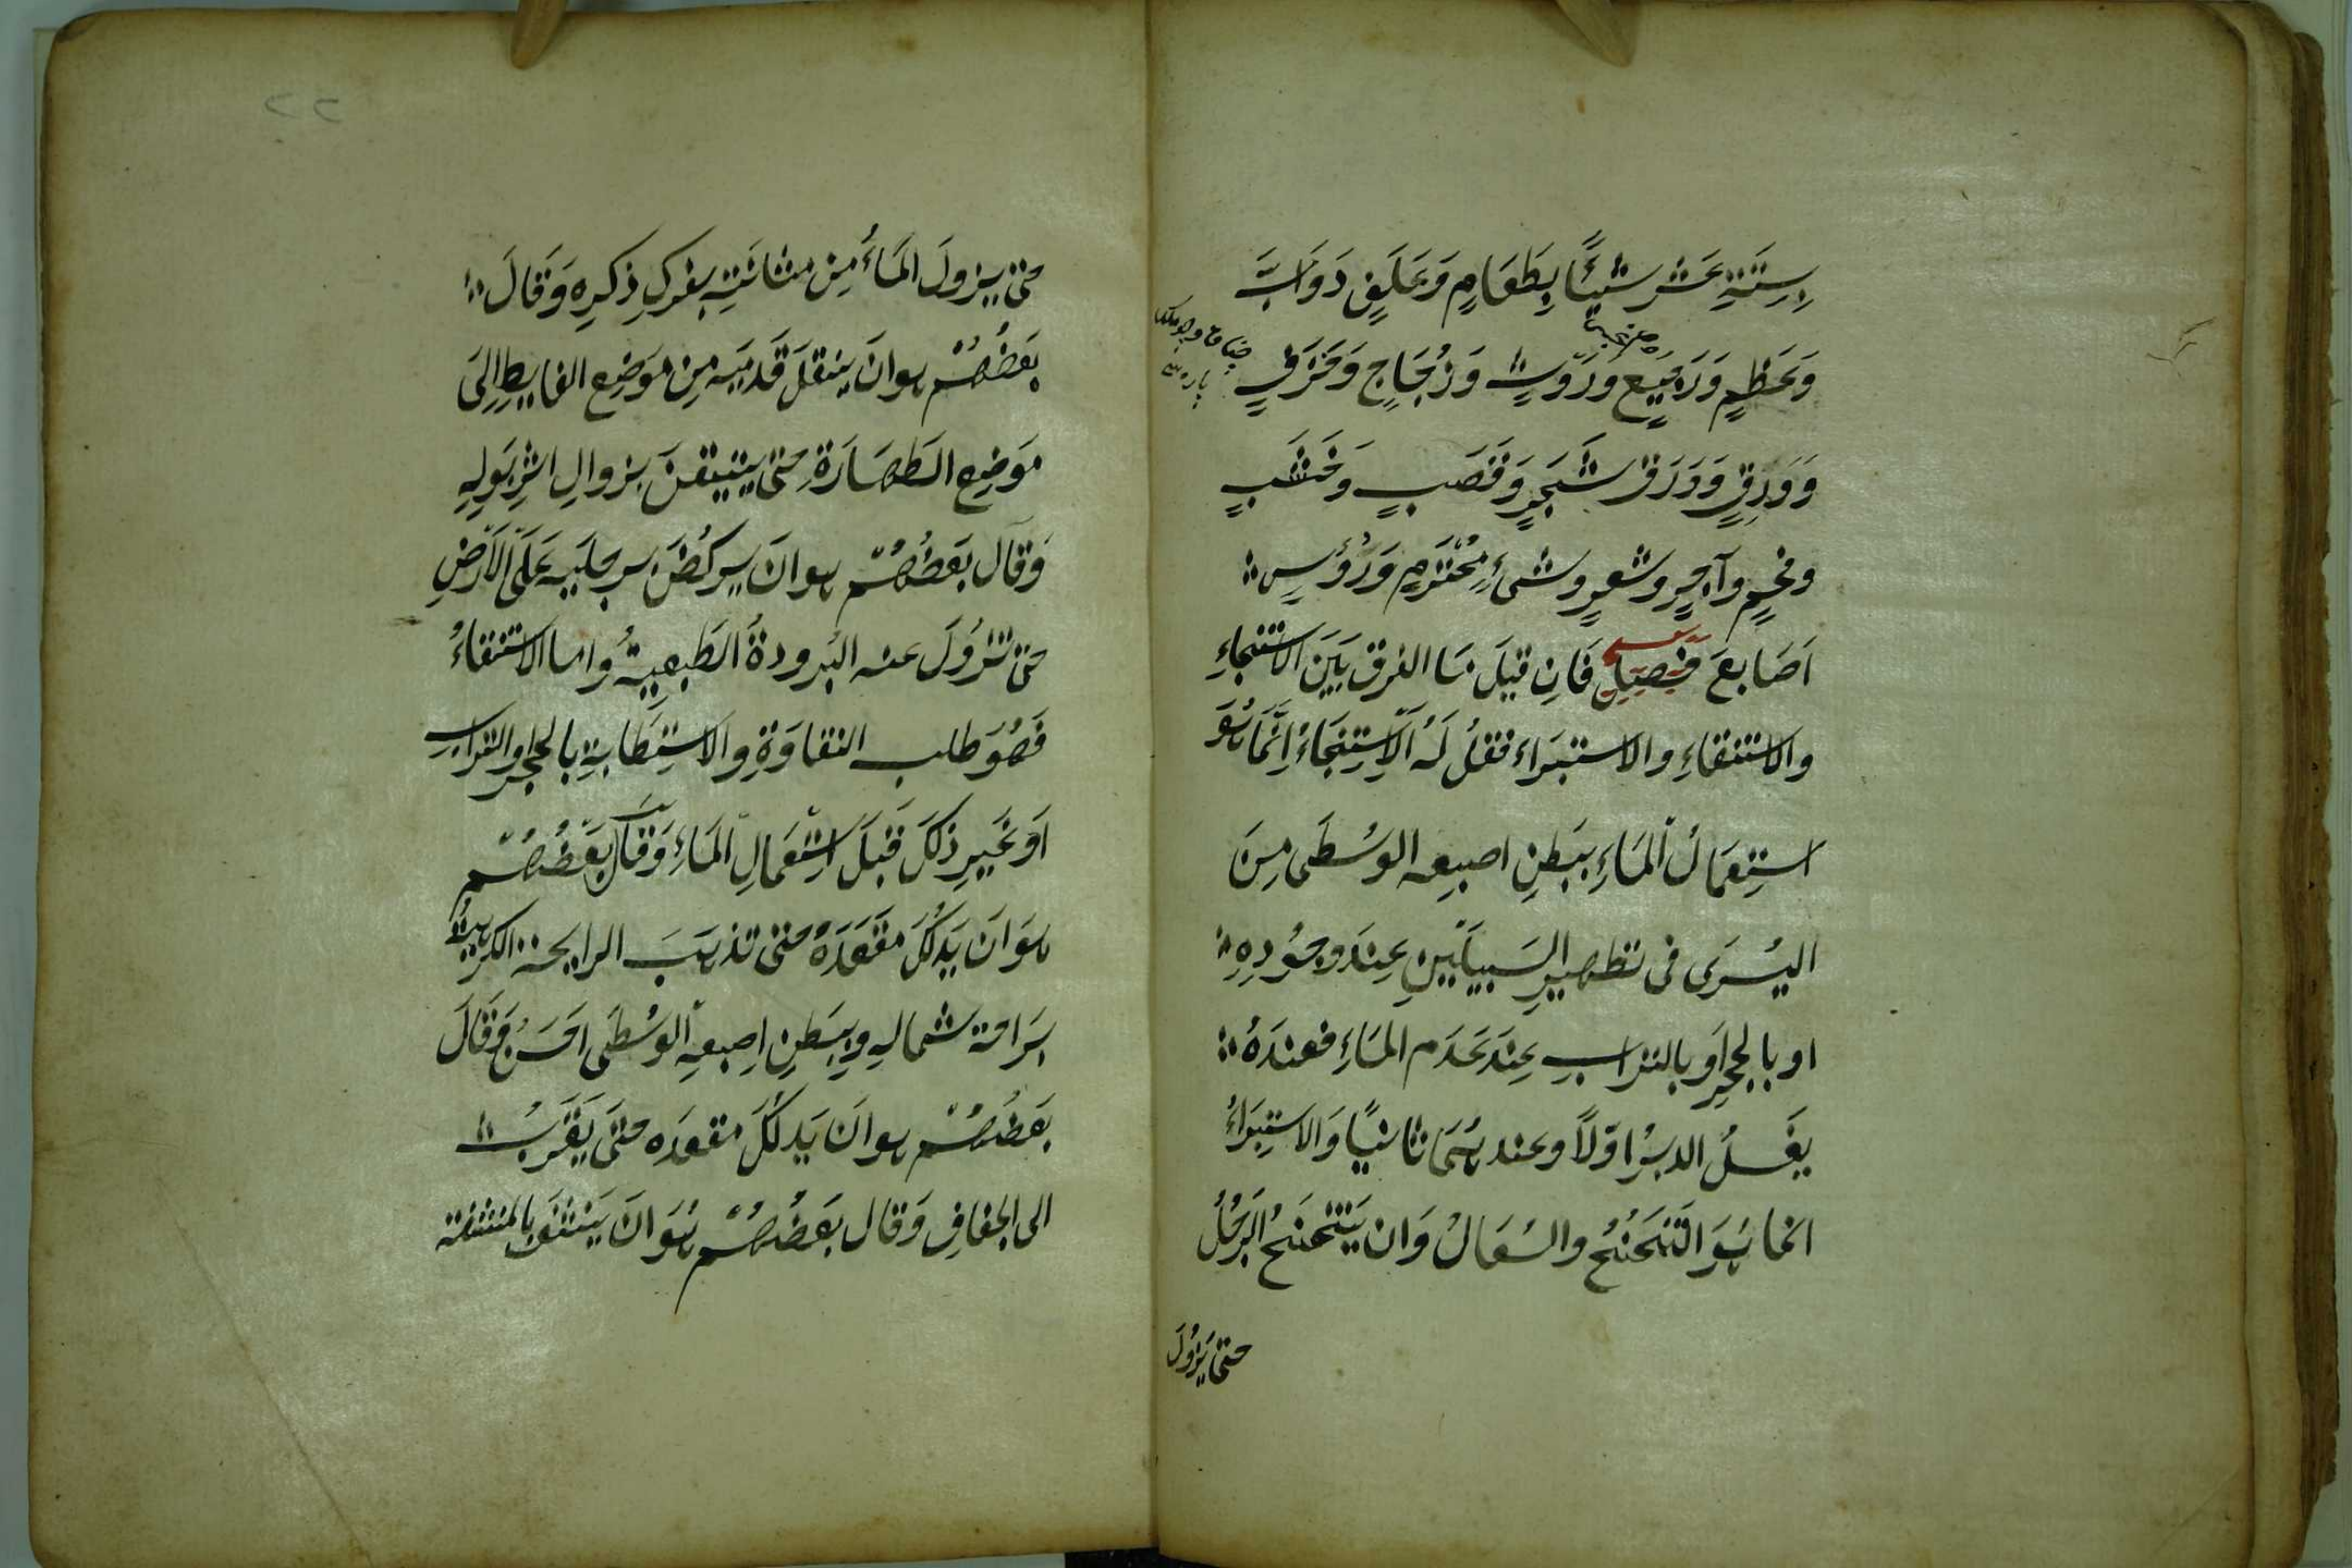 بِسِتَّةِ عَشَرَ شَيْئًا بِطَعَامٍ وَعَلَفِ دَوَابَّ
وَعَظْمٍ وَرَجِيعٍ ورَوْثٍ وَزُجَاجٍ وَخَزَفٍ
وَوَرَقٍ وَوَرَقِ شَجَرٍ وَقَصَبٍ وَخَشَبٍ
وفحمٍ وآجرٍ وشعرٍ وشىءٍ مُحْتَرَمٍ وَرُؤُسِ
اَصَابِعَ فصل فَاِن قيلَ مَا الفرق بَيْنَ الاستنجاءِ
والاستنقاءِ والاستبراء فقلُ لَهُ الاِستِنجَاءُ اِنَّمَا هُوَ
استِعمَالُ المَاءِ بِبَطنِ اصبعِه الوُسْطَى مِنَ
اليُسْرَى فى تطهيرِ السَبيلَينِ عِندَ وجُودِهِ
او بالحجرِ اَو بالتراب عِندَ عَدَمِ المَاءِ فعندَهُ
يغسلُ الدبرُ اوّلاً وعندهُمَا ثانيًا وَالاستِبرَاءُ
انما هُوَ التَنَحْنُحُ والسُعَالُ وَان يَتَنحنَحُ الرَجُلُ
حتى يَزُولَ
حتى يزولَ المَاءُ مِن مثانَتِه بفركِ ذكرِه وَقَالَ
بَعضُهُمْ هو ان ينقلَ قَدمَيْه مِن مَوضِعِ الغايطِ اِلَى
مَوضِعِ الطَهَارَةِ حتى يتيقنَ بزوالِ اثرِ بَولِهِ
وَقالَ بَعضُهُمْ هو ان يركُضَ برجلَيهِ عَلَى الاَرْضِ
حتى تَزُولَ عنه البُرودةُ الطَبعِيَّةُ واما الاستنقاءُ
فَهُوَ طلب النقاوَةِ والاستِطَابةِ بالحجرِ والترابِ
اَو غَيرِ ذلكَ قَبلَ اسْتِعمَالِ المَاءِ وَقَالَ بَعْضُهُمْ
هوَ ان يَدلُكَ مَقعَدَهُ حتى تذهَبَ الرايحة الكريهةُ
بِرَاحة شمالِهِ وبِبَطنِ اِصبعِه الوُسْطَى احَسَنُ وَقَالَ
بَعضهُمْ هو ان يَدلُكَ مقعدَه حتى يَقرَبُ
الى الجفافِ وَقال بَعضُهُمْ هُوَ ان يَنشفَ بالمنشفة